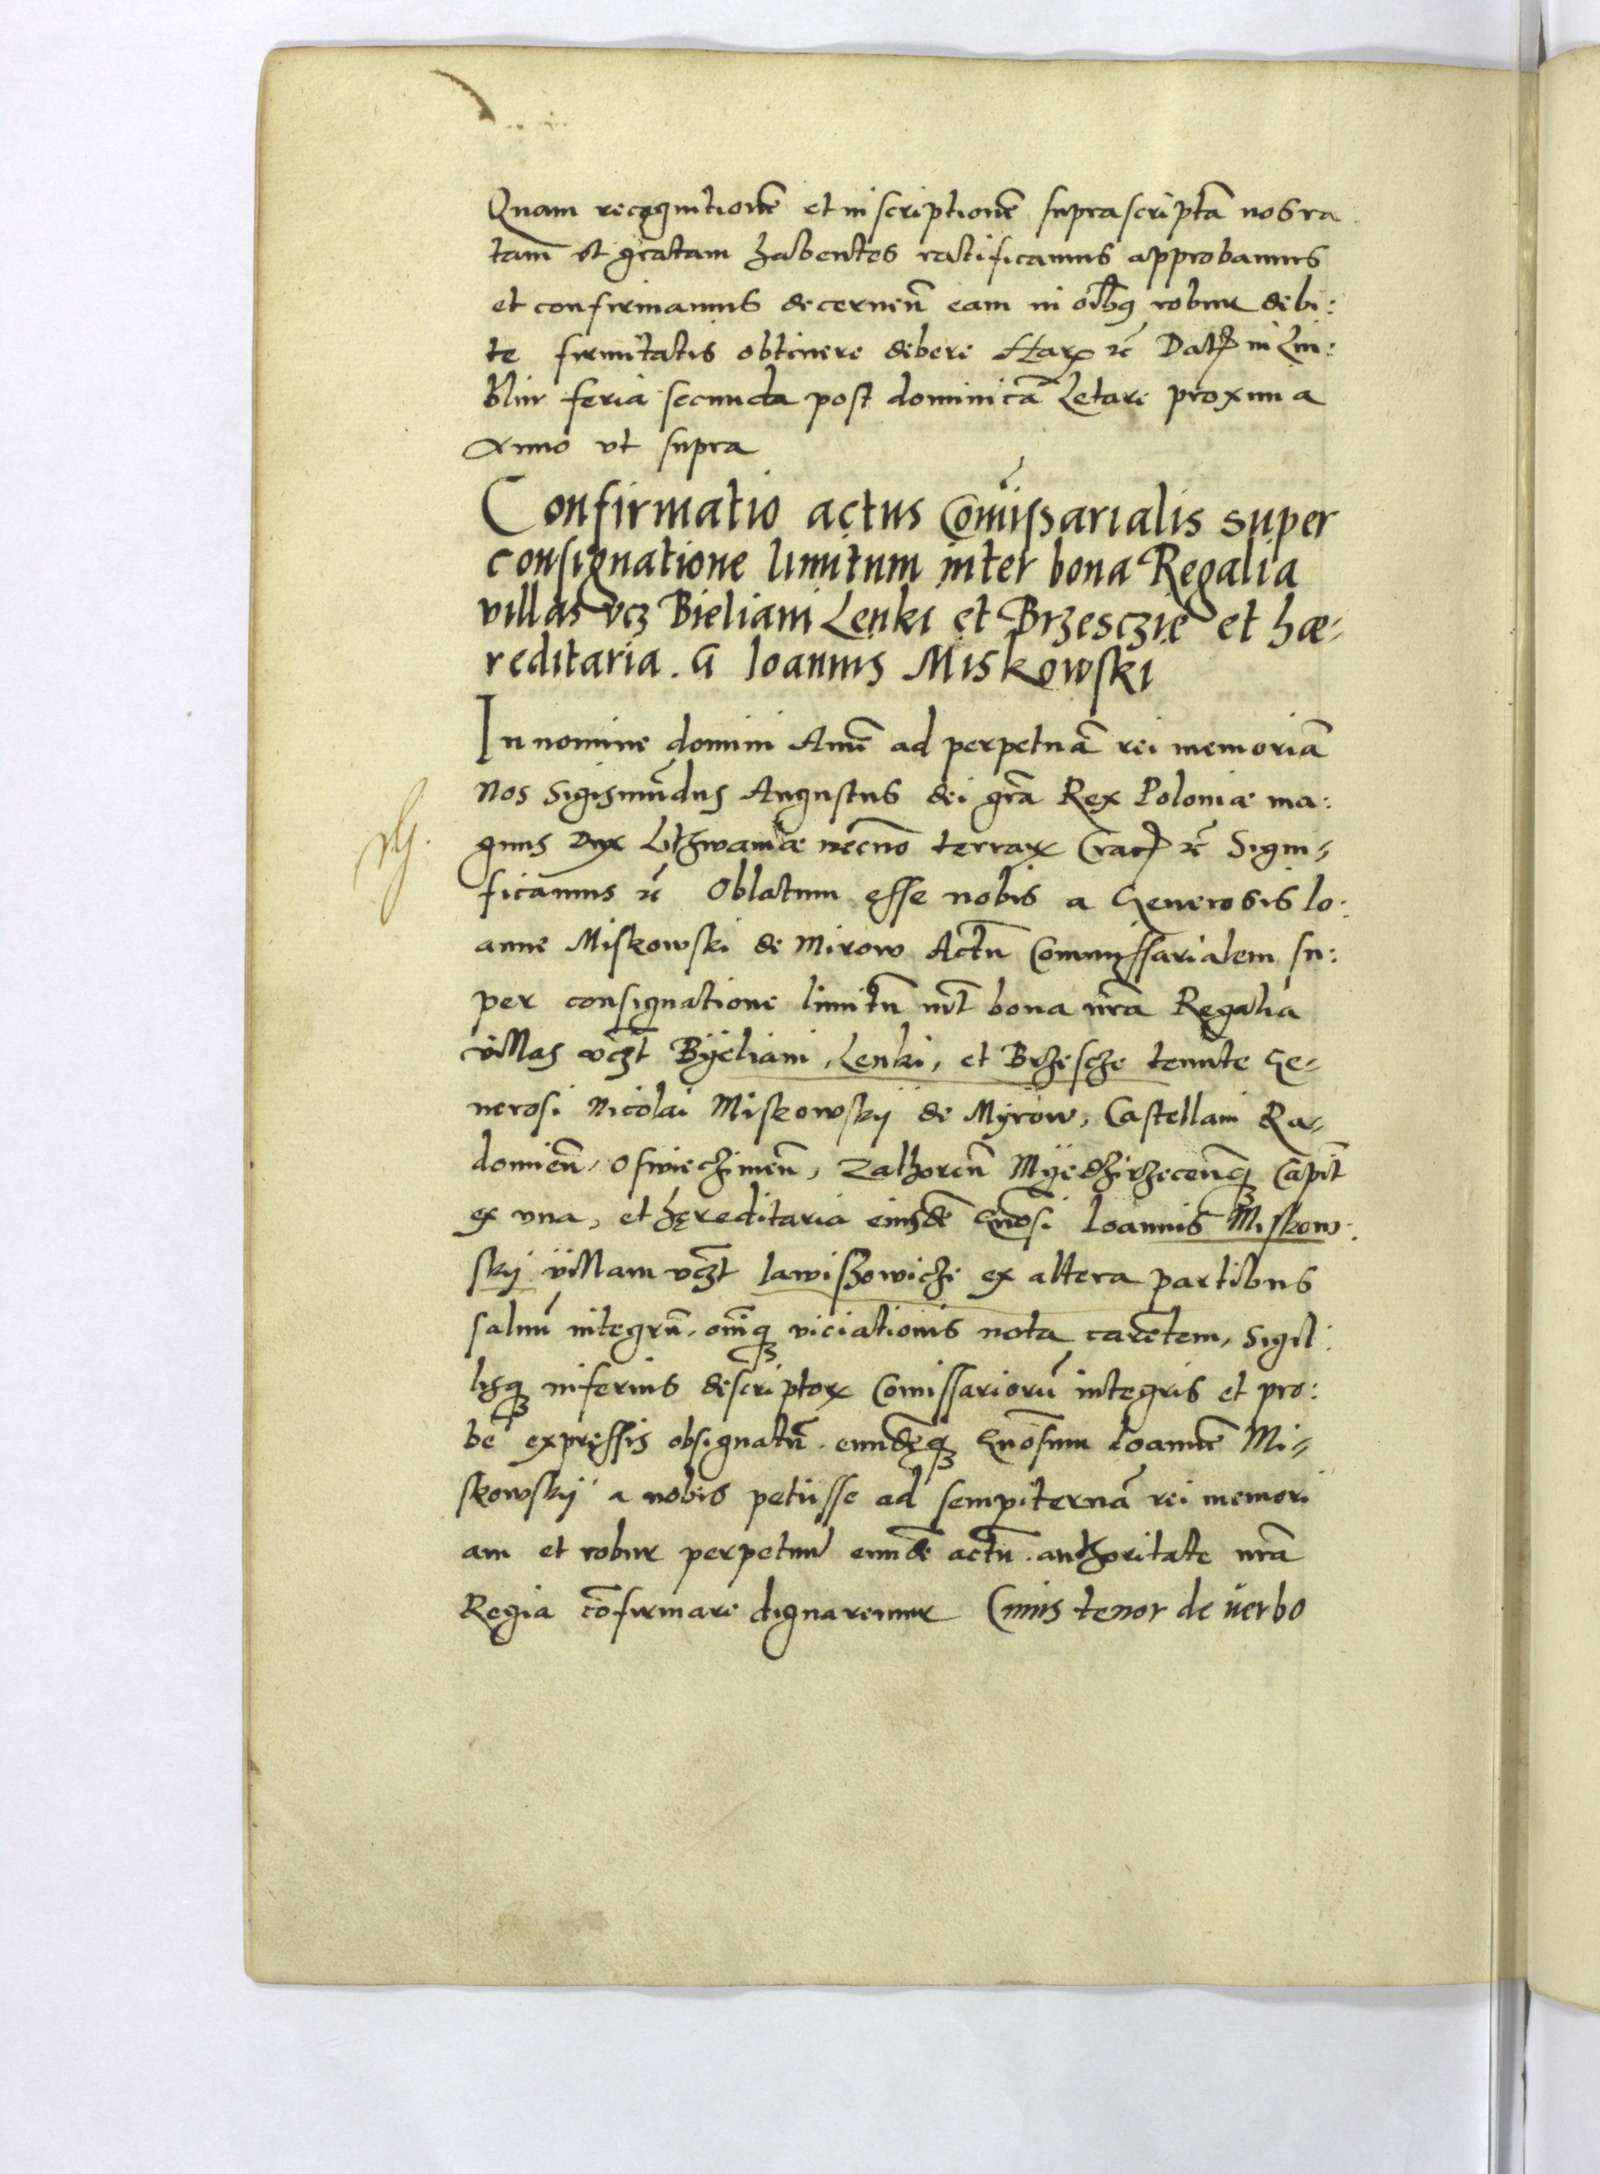 Quam recognitionē et inscriptionē suprascriptā nos ra
tam et gratam habentes ratificamus approbamus
et confirmamus decernen̄ eam in oībꝫ robur debi:
te firmitatis obtinere debere Harꝝ ꝛc̄ Datꝭ in Lu:
blin feria secunda post dominicā Letare proxima
Anno vt supra
Confirmatio actus Com̄issarialis super
consignatione limitum inter bona Regalia
villas vcꝫ Bieliani Lenki et Brzesczie et hæ-
reditaria. G Ioannis Miskowski
In nomine domini Amē ad perpetuā rei memoriā
Nos Sigismūdus Augustus dei grā Rex Poloniæ ma:
gnus Dux Lithwaniæ necno terraꝝ Cracꝭ ꝛc̄ Signi-
ficamus ꝛc̄ Oblatum esse nobis a Generosis Io:
anne Miskowski de Mirow Actū Commissarialem su:
per consignatione limitū int̄ bona nrā Regalia
villas vcꝫt Byeliani, Lenki, et Brzescze tenute Ge-
nerosi Nicolai Miskowskij de Myrow, Castellani Ra-
domieñ, Oswieczimeñ, Zathoreñ Myedzirzeceñqꝫ Capit̄
ex vna, et hęreditaria eiusdē Gnōsi Ioannis Miskow:
skij villam vcꝫt Lawiszowiche ex altera partibus
saluū integrū, om̄iqꝫ viciationis nota carētem, Sigil:
lisqꝫ inferius descriptoꝝ Comissariorū integris et pro:
be expręssis obsignatū. eundēqꝫ Gnōsum Ioannē Mi-
skowskij a nobis petiisse ad sempiternā rei memori
am et robur perpetuū eundē actū. authoritate nrā
Regia cōfirmare dignaremur Cuius tenor de verbo